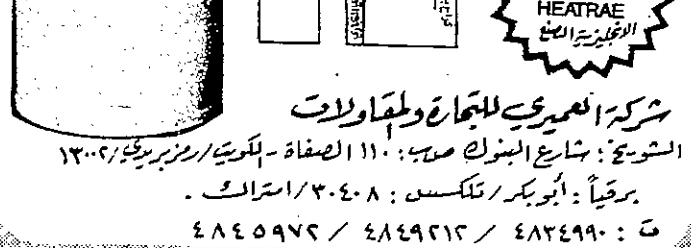 HEATRAE
الانجليزية الصنع
شركة العميري للتجارة والمقاولات
الشويخ : شارع البنوك ص.ب : ١١٠ الصفاة - الكويت / رمز بريدي / ١٣٠٠٢
برقياً : أبوبكر / تلكس : ٣٠٤٠٨ / امتراك .
ت : ٤٨٣٤٩٩٠ / ٤٨٤٩٢١٢ / ٤٨٤٥٩٧٢